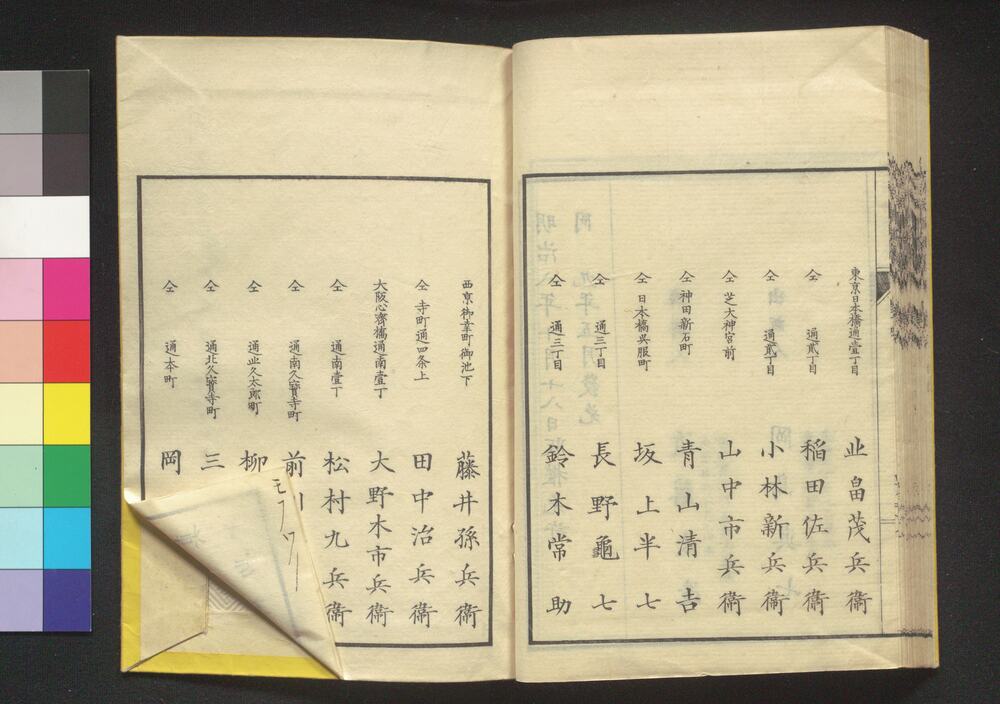 東京日本橋通壹丁目 北畠茂兵衛
仝 通貳丁目 稲田佐兵衛
仝 通貳丁目 小林新兵衛
仝 芝大神宮前 山中市兵衛
仝 神田新石町 青山清吉
仝 日本橋呉服町 坂上半七
仝 通三丁目 長野龜七
仝 通三丁目 鈴木常助
西京御幸町御池下 藤井孫兵衛
仝 寺町通四条上 田中治兵衛
大阪心齋橋通南壹丁 大野木市兵衛
仝 通南壹丁 松村九兵衛
仝 通南久寳寺町 前川
仝 通北久太郎町 柳
仝 通北久寳寺町 三
仝 通本町 岡